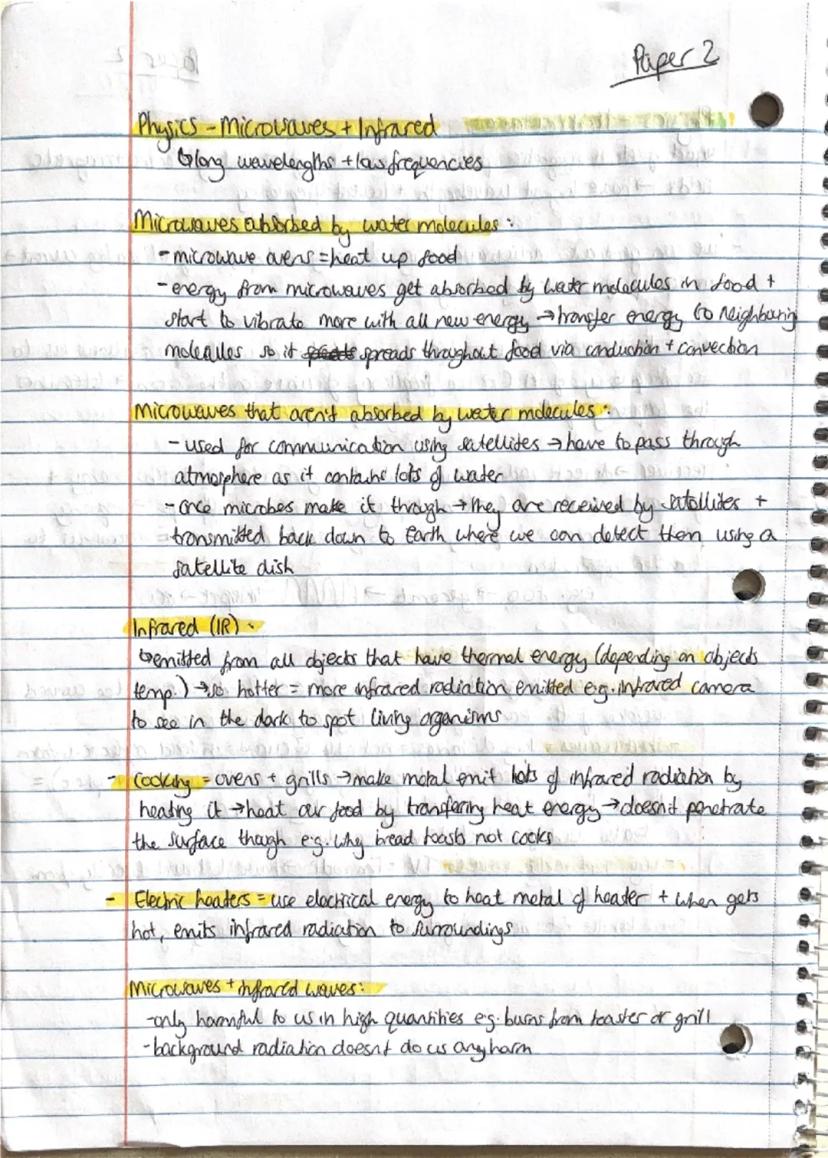 Paper 2
Physics - Microwaves + Infrared
↳long wavelengths + low frequencies
Microwaves absorbed by water molecules:
- microwave ovens = heat up food
- energy from microwaves get absorbed by water molecules in food +
start to vibrate more with all new energy → transfer energy to neighbouring
molecules so it spreads throughout food via conduction + convection
Microwaves that aren't absorbed by water molecules:
- used for communication using satellites → have to pass through
atmosphere as it contains lots of water
- once microbes make it through → they are received by satellites +
transmitted back down to Earth where we can detect them using a
satellite dish
Infrared (IR) -
↳emitted from all objects that have thermal energy (depending on objects
temp.) → so hotter = more infrared radiation emitted e.g. infrared camera
to see in the dark to spot living organisms
- Cooking = ovens + grills → make metal emit lots of infrared radiation by
heating it → heat our food by transfering heat energy → doesn't penetrate
the surface though e.g. why bread toasts not cooks
- Electric heaters = use electrical energy to heat metal of heater + when gets
hot, emits infrared radiation to surroundings
Microwaves + infrared waves:
- only harmful to us in high quantities e.g. burns from toaster or grill
- background radiation doesn't do us any harm